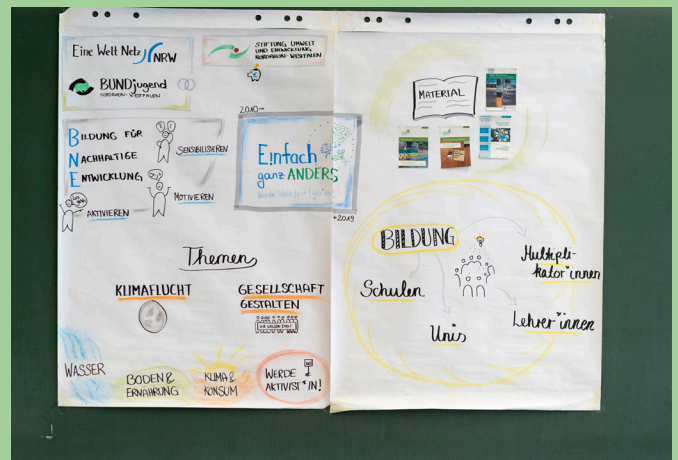 Eine Welt Netz NRW
STIFTUNG UMWELT
UND ENTWICKLUNG
NORDRHEIN-WESTFALEN
BUNDjugend
NORDRHEIN-WESTFALEN
2010→
BILDUNG FÜR
NACHHALTIGE
ENTWICKLUNG
SENSIBILISIEREN
MOTIVIEREN
AKTIVIEREN
E!nfach
ganz ANDERS
→2019
Themen
KLIMAFLUCHT
GESELLSCHAFT
GESTALTEN
WASSER
BODEN &
ERNÄHRUNG
KLIMA &
KONSUM
WERDE
AKTIVIST*IN!
MATERIAL
BILDUNG
Schulen
Unis
Multipli-
kator*innen
Lehrer*innen